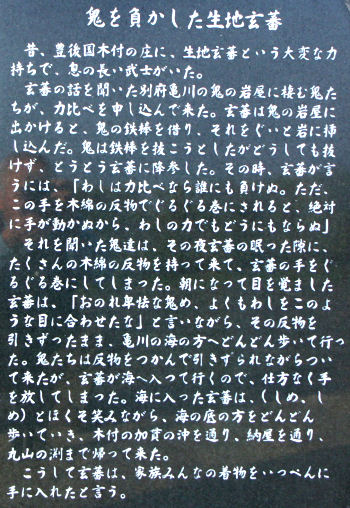 鬼を負かした生地玄蕃
昔、豊後国木付の庄に、生地玄蕃という大変な力
持ちで、息の長い武士がいた。
玄蕃の話を聞いた別府亀川の鬼の岩屋に棲む鬼た
ちが、力比べを申し込んで来た。玄蕃は鬼の岩屋に
出かけると、鬼の鉄棒を借り、それをぐいと岩に挿
し込んだ。鬼は鉄棒を抜こうとしたがどうしても抜
けず、とうとう玄蕃に降参した。その時、玄蕃が言
うには、「わしは力比べなら誰にも負けぬ。ただ、
この手を木綿の反物でぐるぐる巻にされると、絶対
に手が動かぬから、わしの力でもどうにもならぬ」
それを聞いた鬼達は、その夜玄蕃の眠った隙に、
たくさんの木綿の反物を持って来て、玄蕃の手をぐ
るぐる巻にしてしまった。朝になって目を覚ました
玄蕃は、「おのれ卑怯な鬼め、よくもわしをこのよ
うな目に合わせたな」と言いながら、その反物を
引きずったまま、亀川の海の方へどんどん歩いて行っ
た。鬼たちは反物をつかんで引きずられながらつい
て来たが、玄蕃が海へ入って行くので、仕方なく手
を放してしまった。海に入った玄蕃は、(しめ、し
め)とほくそ笑みながら、海の底の方をどんどん
歩いていき、木付の加貫の沖を通り、納屋を通り、
丸山の渕まで帰って来た。
こうして玄蕃は、家族みんなの着物をいっぺんに
手に入れたと言う。